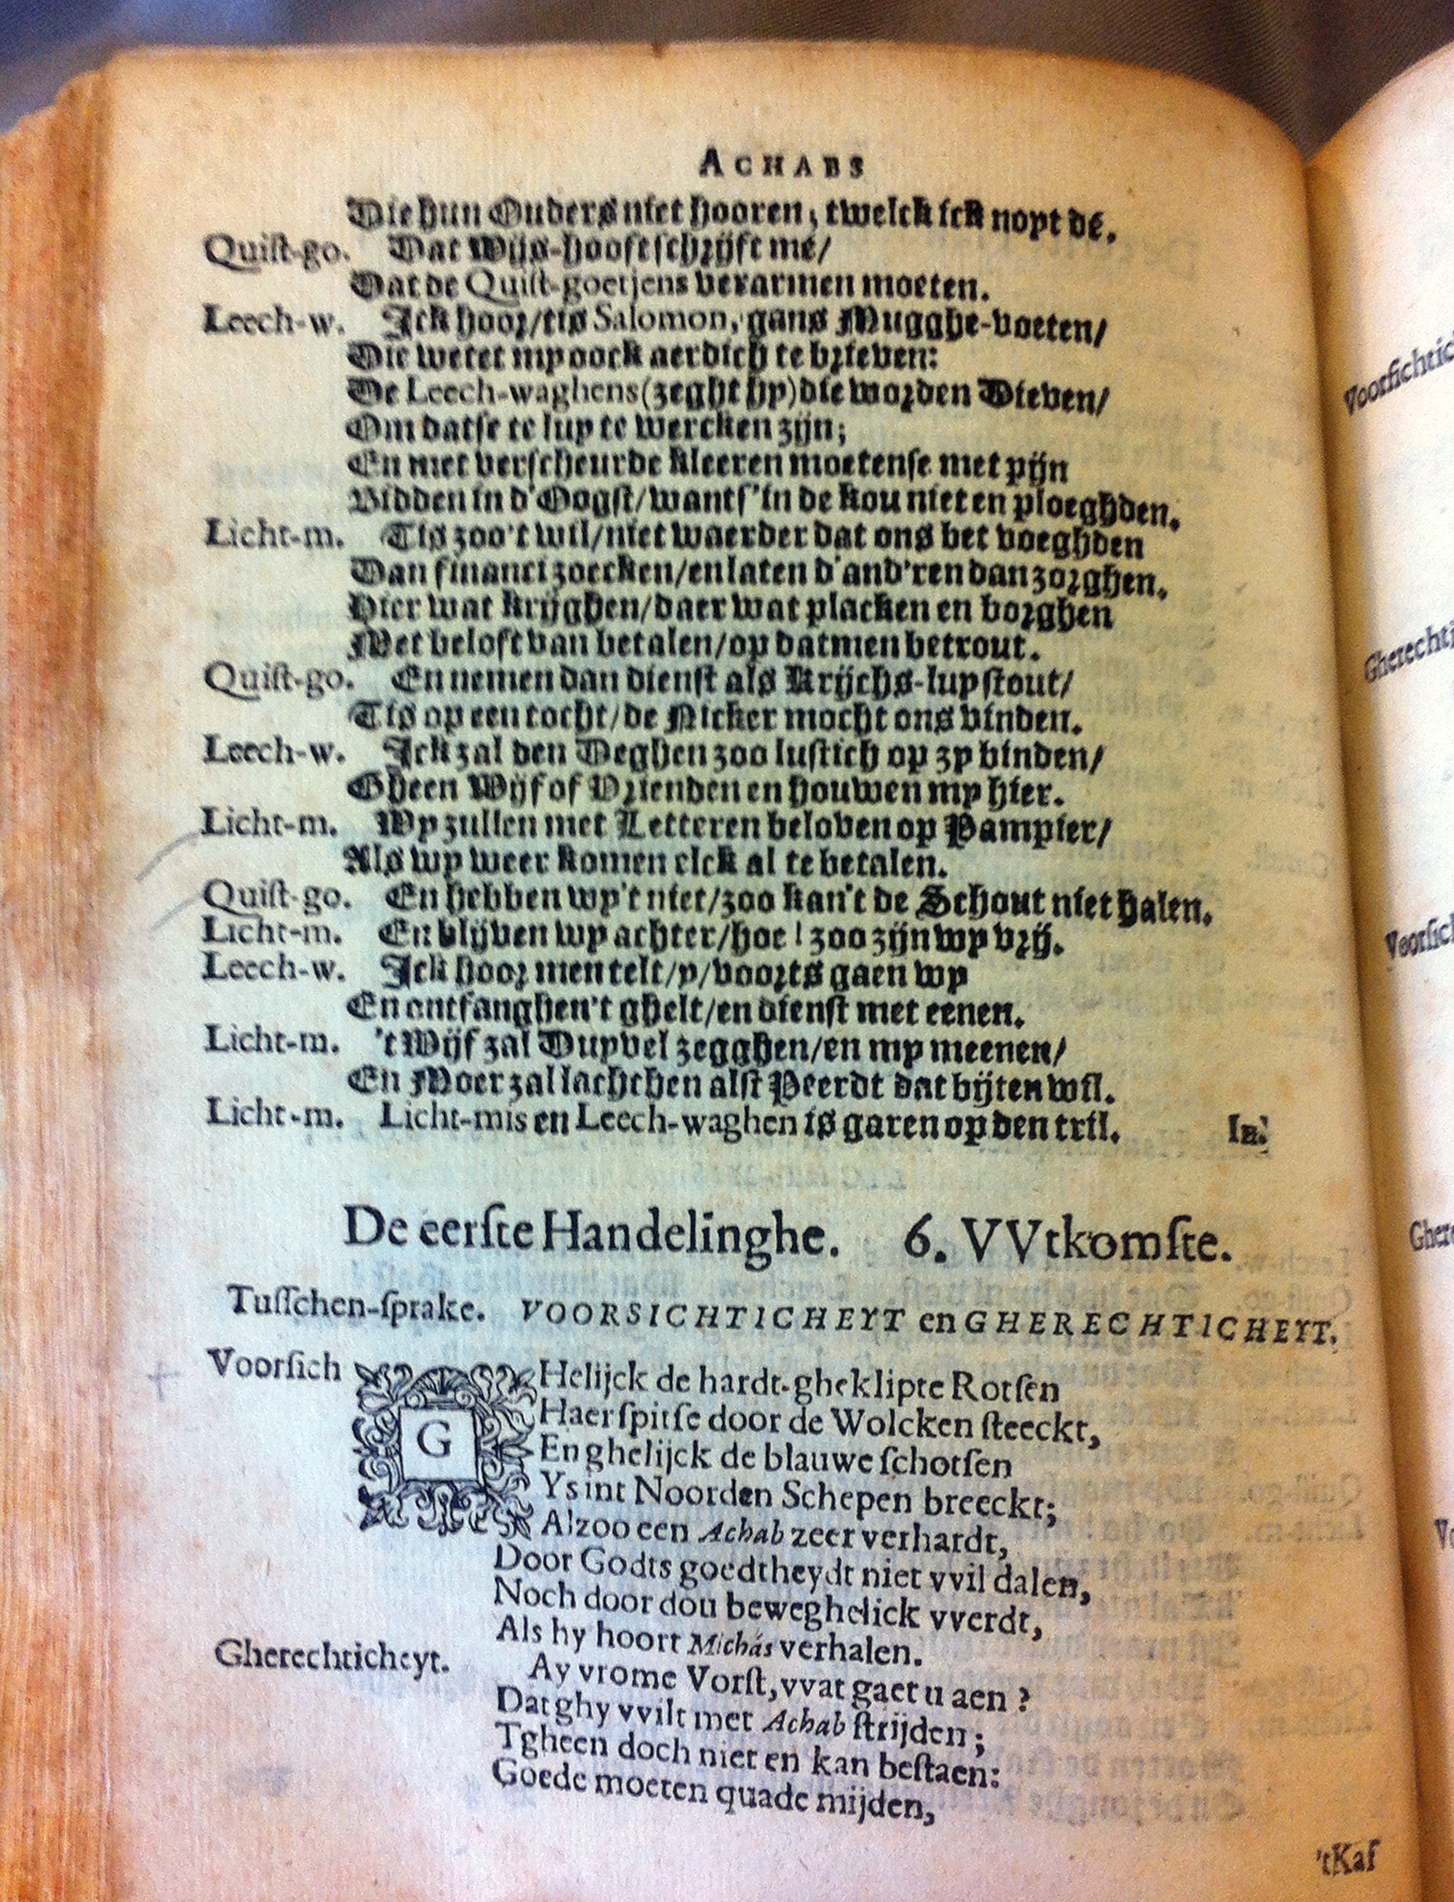 ACHABS
Die hun Ouders niet hooren, twelck ick nopt dé.
Quist-go. Dat Wijs-hooft schrijft mé/
Dat de Quist-goetjens verarmen moeten.
Leech-w. Ick hoor/tis Salomon, gans Mugghe-voeten/
Die wetet my oock aerdich te brieven:
De Leech-waghens (zeght hy) die worden Dieven/
Om datse te luy te wercken zijn;
En met verscheurde kleeren moetense met pijn
Bidden in d'Oogst/want s'in de kou niet en ploeghden.
Licht-m. Tis zoo't wil/niet waerder dat ons bet voeghden
Dan financi zoecken/en laten d'and'ren dan zorghen.
Hier wat krijghen/daer wat placken en borghen
Met beloft van betalen/op datmen betrout.
Quist-go. En nemen dan dienst als Krijchs-luy stout/
Tis op een tocht/de Nicker mocht ons vinden.
Leech-w. Ick zal den Deghen zoo lustich op zy binden/
Gheen Wijf of Vrienden en houwen my hier.
Licht-m. Wy zullen met Letteren beloven op Pampier/
Als wy weer komen elck al te betalen.
Quist-go. En hebben wy't niet/zoo kan't de Schout niet halen.
Licht-m. En blijven wy achter/hoe! zoo zijn wy vrij.
Leech-w. Ick hoor men telt/y/voorts gaen wy
En ontfanghen't ghelt/en dienst met eenen.
Licht-m. 't Wijf zal Duyvel zegghen/en my meenen/
En Moer zal lachchen alst Peerdt dat bijten wil.
Licht-m. Licht-mis en Leech-waghen is garen op den tril. In.
De eerste Handelinghe. 6. VVtkomste.
Tusschen-sprake. VOORSICHTICHEYT en GHERECHTICHEYT.
Voorsich GHelijck de hardt-gheklipte Rotsen
Haer spitse door de Wolcken steeckt,
En ghelijck de blauwe schotsen
Ys int Noorden Schepen breeckt;
Alzoo een Achab zeer verhardt,
Door Godts goedtheydt niet vvil dalen,
Noch door dou beweghelick vverdt,
Als hy hoort Michás verhalen.
Gherechticheyt. Ay vrome Vorst, vvat gaet u aen?
Dat ghy vvilt met Achab strijden;
Tgheen doch niet en kan bestaen:
Goede moeten quade mijden,
'tKaf
Voorsichtic
Gherechti
Voorsich
Ghere
Vo